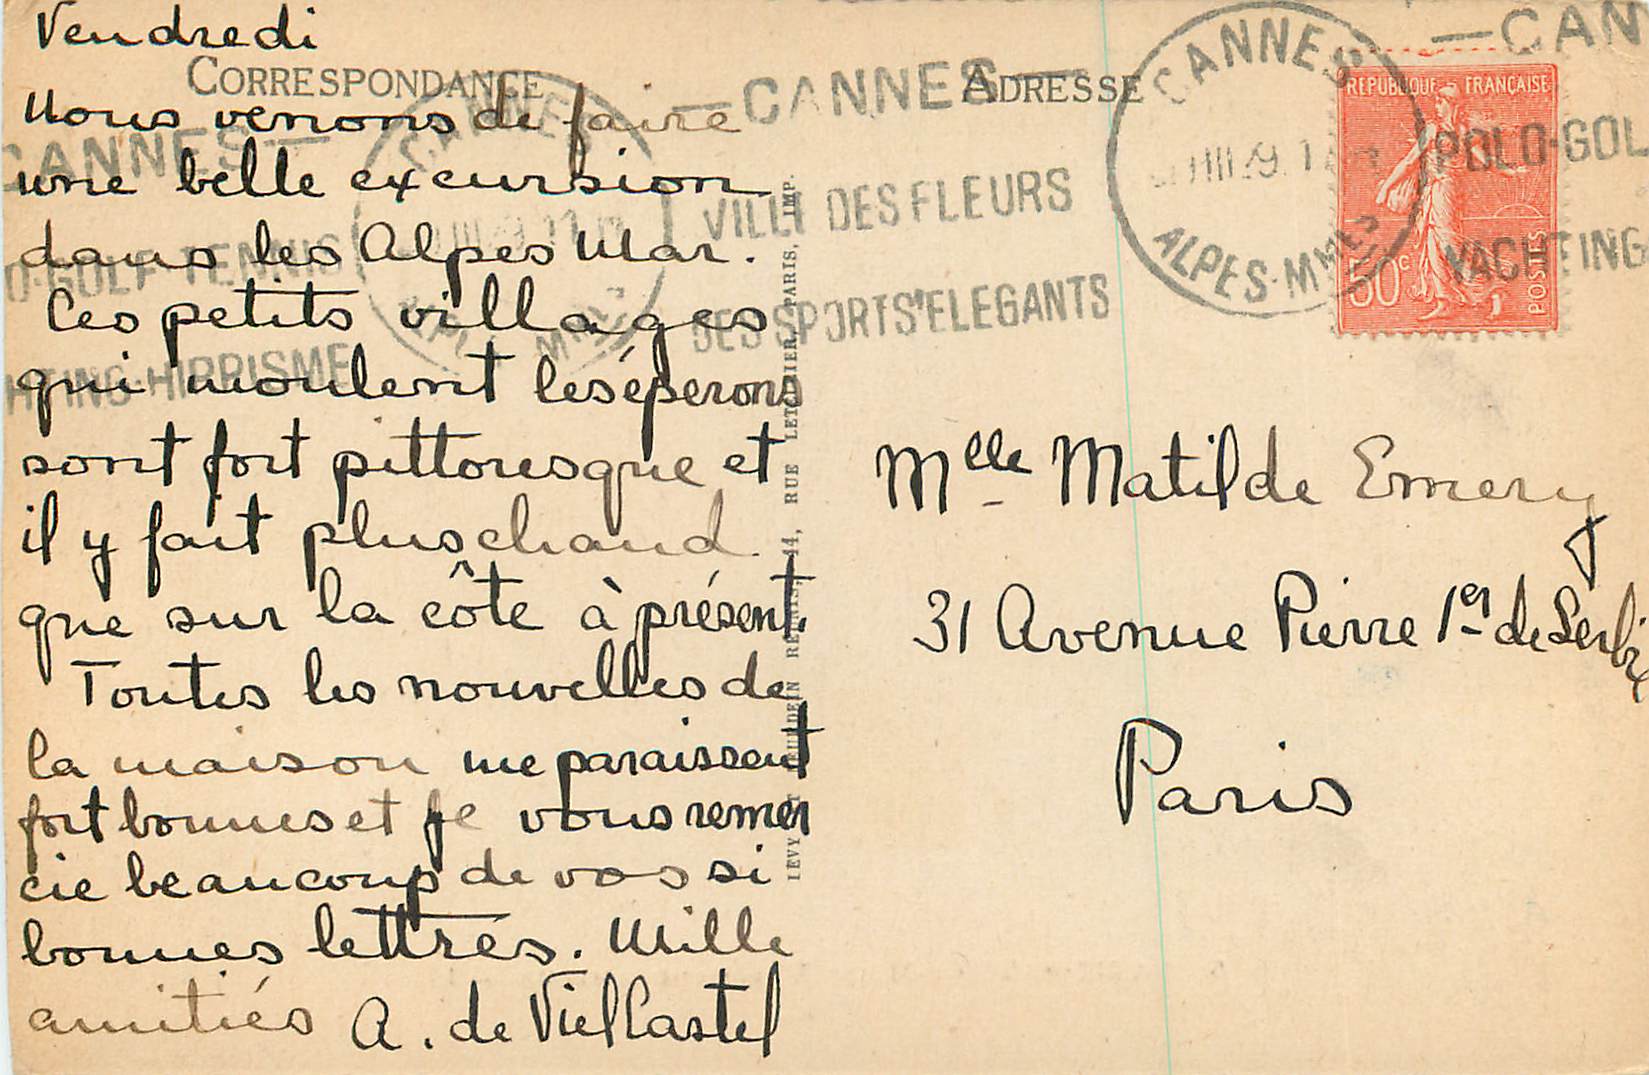 Vendredi
CORRESPONDANCE
Nous venons de faire
une belle excursion
dans les Alpes Mar.
Ces petits villages
qui moulent les éperons
sont fort pittoresque et
il y fait plus chaud
que sur la côte à présent.
Toutes les nouvelles de
la maison me paraissent
fort bonnes et je vous remer
cie beaucoup de vos si
bonnes lettres. Mille
amitiés A. de Viel Castel
CANNES
GOLF-TENNIS
HIPPISME
CANNES
—CANNES—
VILLE DES FLEURS
DES SPORTS ELEGANTS
RUE LETELLIER, PARIS, IMP.
ADRESSE
CANNES
ALPES-MMES
—CAN
POLO-GOL
YACHTING
REPUBLIQUE FRANÇAISE
50c
POSTES
Mlle Matilde Emery
31 Avenue Pierre 1er de Serbie
Paris